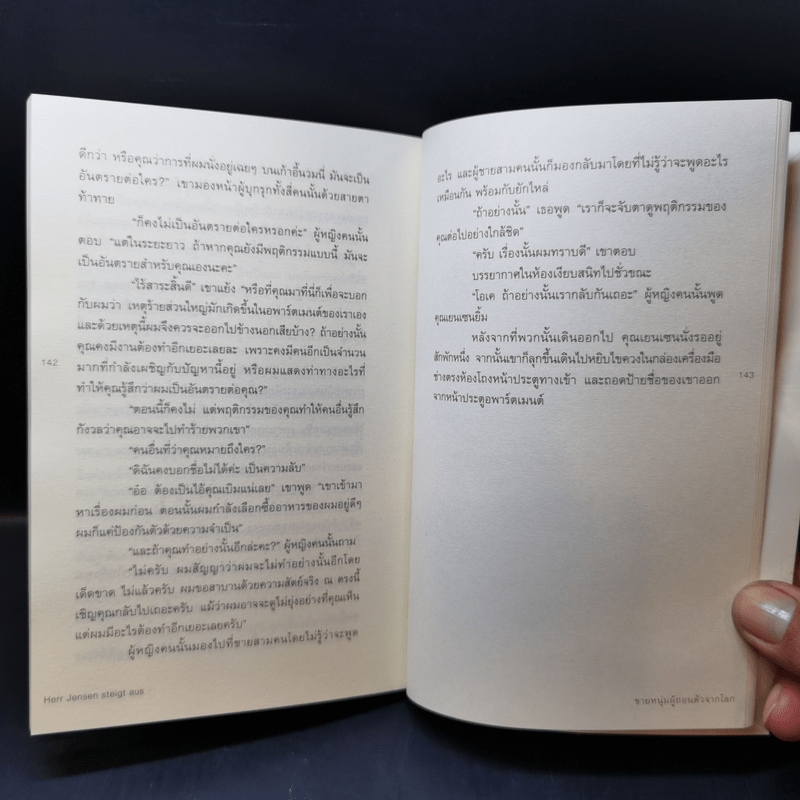 ดีกว่า หรือคุณว่าการที่ผมนั่งอยู่เฉยๆ บนเก้าอี้นวมนี่ มันจะเป็น
อันตรายต่อใคร?” เขามองหน้าผู้บุกรุกทั้งสี่คนนั้นด้วยสายตา
ท้าทาย
“ก็คงไม่เป็นอันตรายต่อใครหรอกค่ะ” ผู้หญิงคนนั้น
ตอบ “แต่ในระยะยาว ถ้าหากคุณยังมีพฤติกรรมแบบนี้ มันจะ
เป็นอันตรายสำหรับคุณเองนะคะ”
“ไร้สาระสิ้นดี” เขาแย้ง “หรือที่คุณมาที่นี่ก็เพื่อจะบอก
กับผมว่า เหตุร้ายส่วนใหญ่มักเกิดขึ้นในอพาร์ตเมนต์ของเราเอง
และด้วยเหตุนี้ผมจึงควรจะออกไปข้างนอกเสียบ้าง? ถ้าอย่างนั้น
คุณคงมีงานต้องทำอีกเยอะเลยละ เพราะคงมีคนอีกเป็นจำนวน
มากที่กำลังเผชิญกับปัญหานี้อยู่ หรือผมแสดงท่าทางอะไรที่
ทำให้คุณรู้สึกว่าผมเป็นอันตรายต่อคุณ?”
“ตอนนี้ก็คงไม่ แต่พฤติกรรมของคุณทำให้คนอื่นรู้สึก
กังวลว่าคุณอาจจะไปทำร้ายพวกเขา”
“คนอื่นที่ว่าคุณหมายถึงใคร?”
“ดิฉันคงบอกชื่อไม่ได้ค่ะ เป็นความลับ”
“อ๋อ ต้องเป็นไอ้คุณเบิมแน่เลย” เขาพูด “เขาเข้ามา
หาเรื่องผมก่อน ตอนนั้นผมกำลังเลือกซื้ออาหารของผมอยู่ดีๆ
ผมก็แค่ป้องกันตัวด้วยความจำเป็น”
“และถ้าคุณทำอย่างนั้นอีกล่ะคะ?” ผู้หญิงคนนั้นถาม
“ไม่ครับ ผมสัญญาว่าผมจะไม่ทำอย่างนั้นอีกโดย
เด็ดขาด ไม่แล้วครับ ผมขอสาบานด้วยความสัตย์จริง ณ ตรงนี้
เชิญคุณกลับไปเถอะครับ แม้ว่าผมอาจจะดูไม่ยุ่งอย่างที่คุณเห็น
แต่ผมมีอะไรต้องทำอีกเยอะเลยครับ”
ผู้หญิงคนนั้นมองไปที่ชายสามคนโดยไม่รู้ว่าจะพูด
142
Herr Jensen steigt aus
อะไร และผู้ชายสามคนนั้นก็มองกลับมาโดยที่ไม่รู้ว่าจะพูดอะไร
เหมือนกัน พร้อมกับยักไหล่
“ถ้าอย่างนั้น” เธอพูด “เราก็จะจับตาดูพฤติกรรมของ
คุณต่อไปอย่างใกล้ชิด”
“ครับ เรื่องนั้นผมทราบดี” เขาตอบ
บรรยากาศในห้องเงียบสนิทไปชั่วขณะ
“โอเค ถ้าอย่างนั้นเรากลับกันเถอะ” ผู้หญิงคนนั้นพูด
คุณเยนเซนยิ้ม
หลังจากที่พวกนั้นเดินออกไป คุณเยนเซนนั่งรออยู่
สักพักหนึ่ง จากนั้นเขาก็ลุกขึ้นเดินไปหยิบไขควงในกล่องเครื่องมือ
ช่างตรงห้องโถงหน้าประตูทางเข้า และถอดป้ายชื่อของเขาออก
จากหน้าประตูอพาร์ตเมนต์
143
ชายหนุ่มผู้ถอนตัวจากโลก